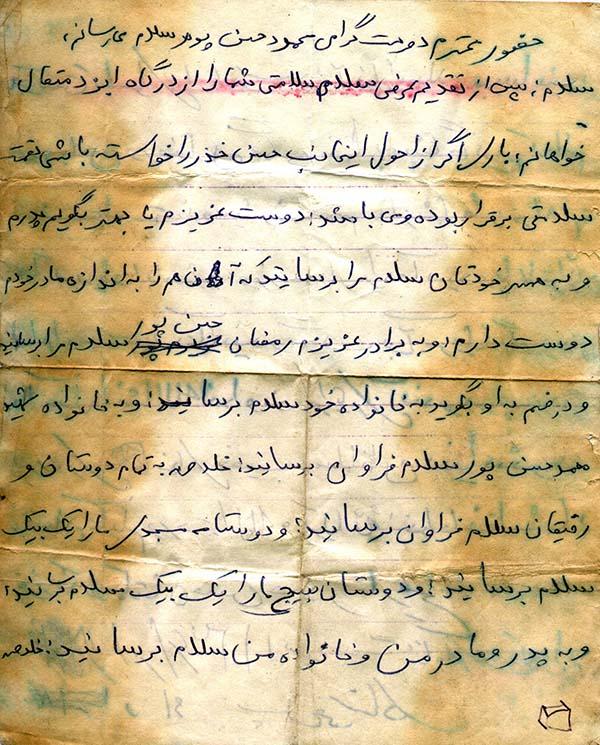 حضور محترم دوست گرامی محمود حسن پور سلام می‌رسانم،
سلام؛ پس از تقدیم عرض سلام سلامتی شما را از درگاه ایزد متعال
خواهانم؛ باری اگر از احوال اینجانب حسن خواسته باشی نعمت
سلامتی برقرار بوده و می باشد؛ دوست عزیزم یا بهتر بگویم پدرم
و به همسر خودتان سلام مرا برسانید که آن خانم را به اندازه مادر خودم
دوست دارم؛ و به برادر عزیزم رمضان حسن پور سلام مرا برسانید
و در ضمن به او بگوید به خانواده خود سلام برسانید؛ و به خانواده شهید
محمد حسن پور سلام فراوان برسانید؛ خلاصه به تمام دوستان و
رفیقان سلام فراوان برسانید؛ و دوستان مسجدی ما را یک بیک
سلام برسانید؛ و دوستان بسیج ما را یک بیک سلام برسانید؛
و به پدر و مادر من و خانواده من سلام برسانید؛ خلاصه